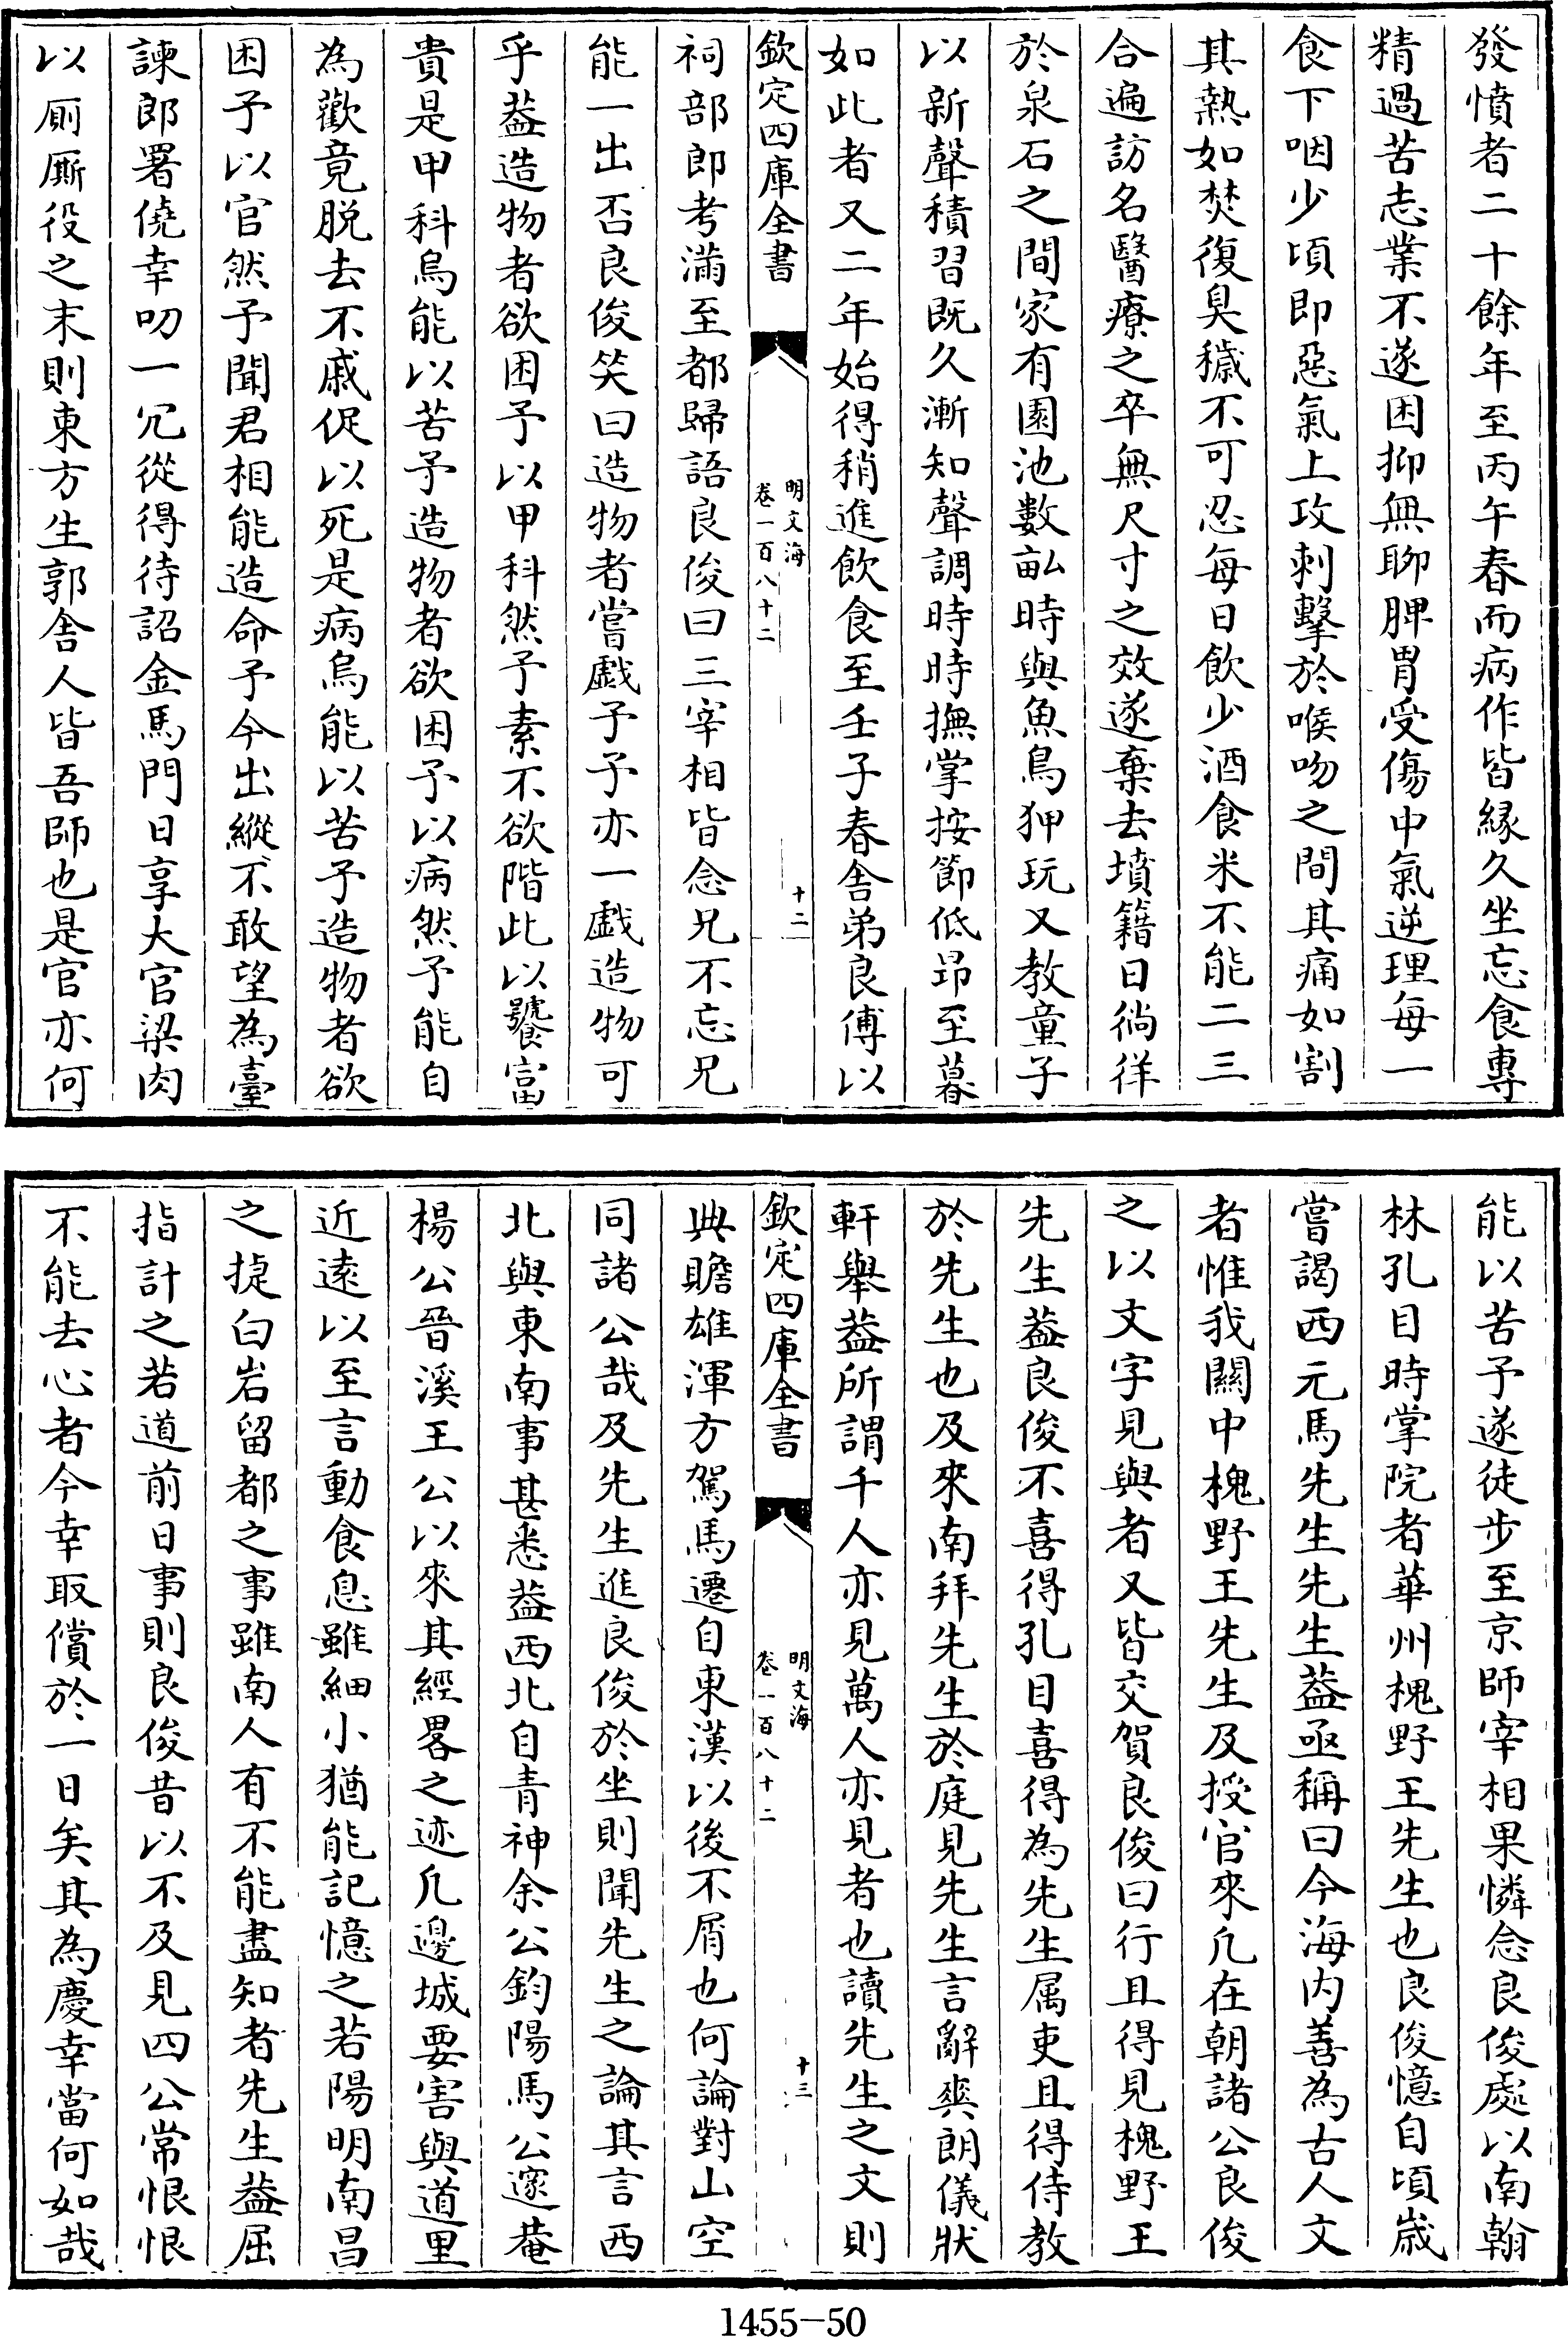 發憤者二十餘年至丙午春而病作皆緣久坐忘食專
精過苦志業不遂困抑無聊脾胃受傷中氣逆理每一
食下咽少頃即惡氣上攻刺擊於喉吻之間其痛如割
其熱如焚復臭穢不可忍每日飲少酒食米不能二三
合遍訪名醫療之卒無尺寸之效遂棄去墳籍日徜徉
於泉石之間家有園池數畝時與魚鳥狎玩又教童子
以新聲積習既久漸知聲調時時撫掌按節低昂至暮
如此者又二年始得稍進飲食至壬子春舍弟良傅以
欽定四庫全書
明文海
卷一百八十二
十二
祠部郎考滿至都歸語良俊曰三宰相皆念兄不忘兄
能一出否良俊笑曰造物者嘗戲予予亦一戲造物可
乎葢造物者欲困予以甲科然予素不欲階此以饕富
貴是甲科烏能以苦予造物者欲困予以病然予能自
為歡竟脱去不戚促以死是病烏能以苦予造物者欲
困予以官然予聞君相能造命予今出縱不敢望為臺
諫郎署僥幸叨一冗從得待詔金馬門日享大官粱肉
以厠厮役之末則東方生郭舍人皆吾師也是官亦何
能以苦予遂徒步至京師宰相果憐念良俊處以南翰
林孔目時掌院者華州槐野王先生也良俊憶自頃嵗
嘗謁西元馬先生先生葢亟稱曰今海内善為古人文
者惟我關中槐野王先生及授官來凡在朝諸公良俊
之以文字見與者又皆交賀良俊曰行且得見槐野王
先生葢良俊不喜得孔目喜得為先生属吏且得侍教
於先生也及來南拜先生於庭見先生言辭爽朗儀狀
軒舉葢所謂千人亦見萬人亦見者也讀先生之文則
欽定四庫全書
明文海
卷一百八十二
十三
典贍雄渾方駕馬遷自東漢以後不屑也何論對山空
同諸公哉及先生進良俊於坐則聞先生之論其言西
北與東南事甚悉葢西北自青神余公鈞陽馬公邃菴
楊公晉溪王公以來其經畧之迹凡邊城要害與道里
近逺以至言動食息雖細小猶能記憶之若陽明南昌
之捷白岩留都之事雖南人有不能盡知者先生葢屈
指計之若道前日事則良俊昔以不及見四公常恨恨
不能去心者今幸取償於一日矣其為慶幸當何如哉
1455-50